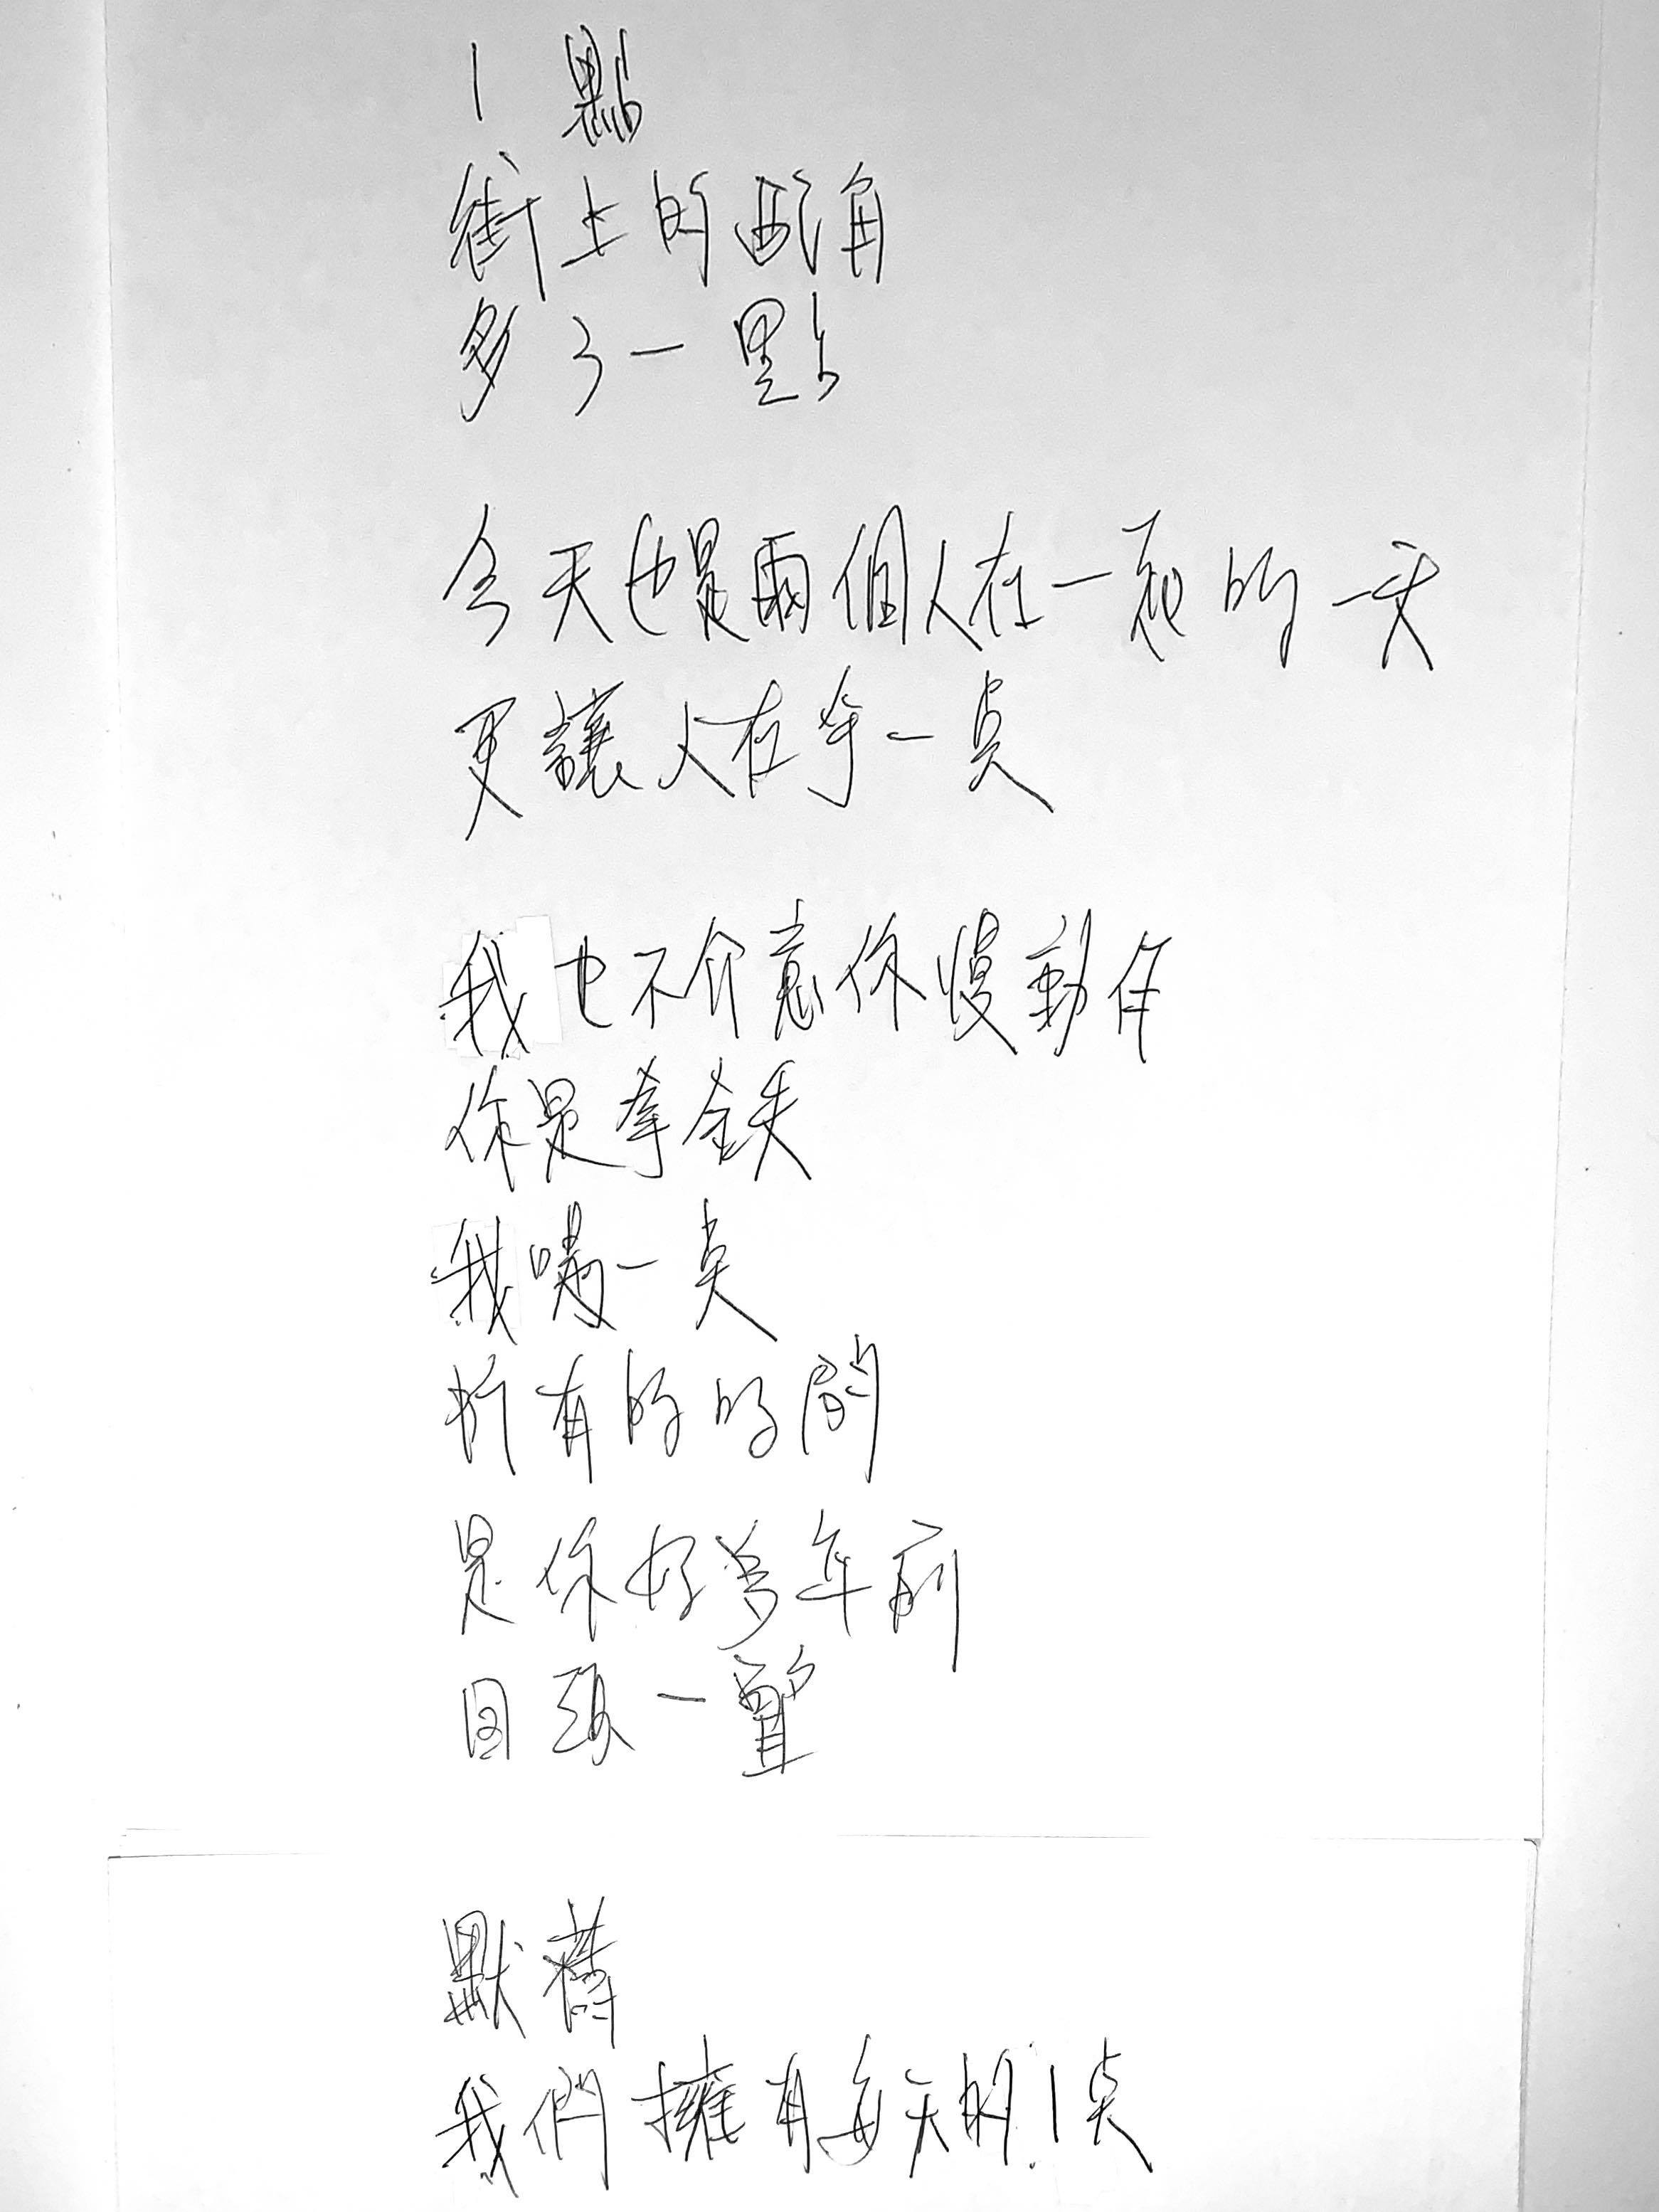 1 點
街上的號角
多了一點
今天也是兩個人在一起的一天
更讓人在乎一点
我也不介意你慢動作
你是拿鉄
我喝一点
所有的時間
是你好多年前
回頭一瞥
默舊
我們擁有每天的1点